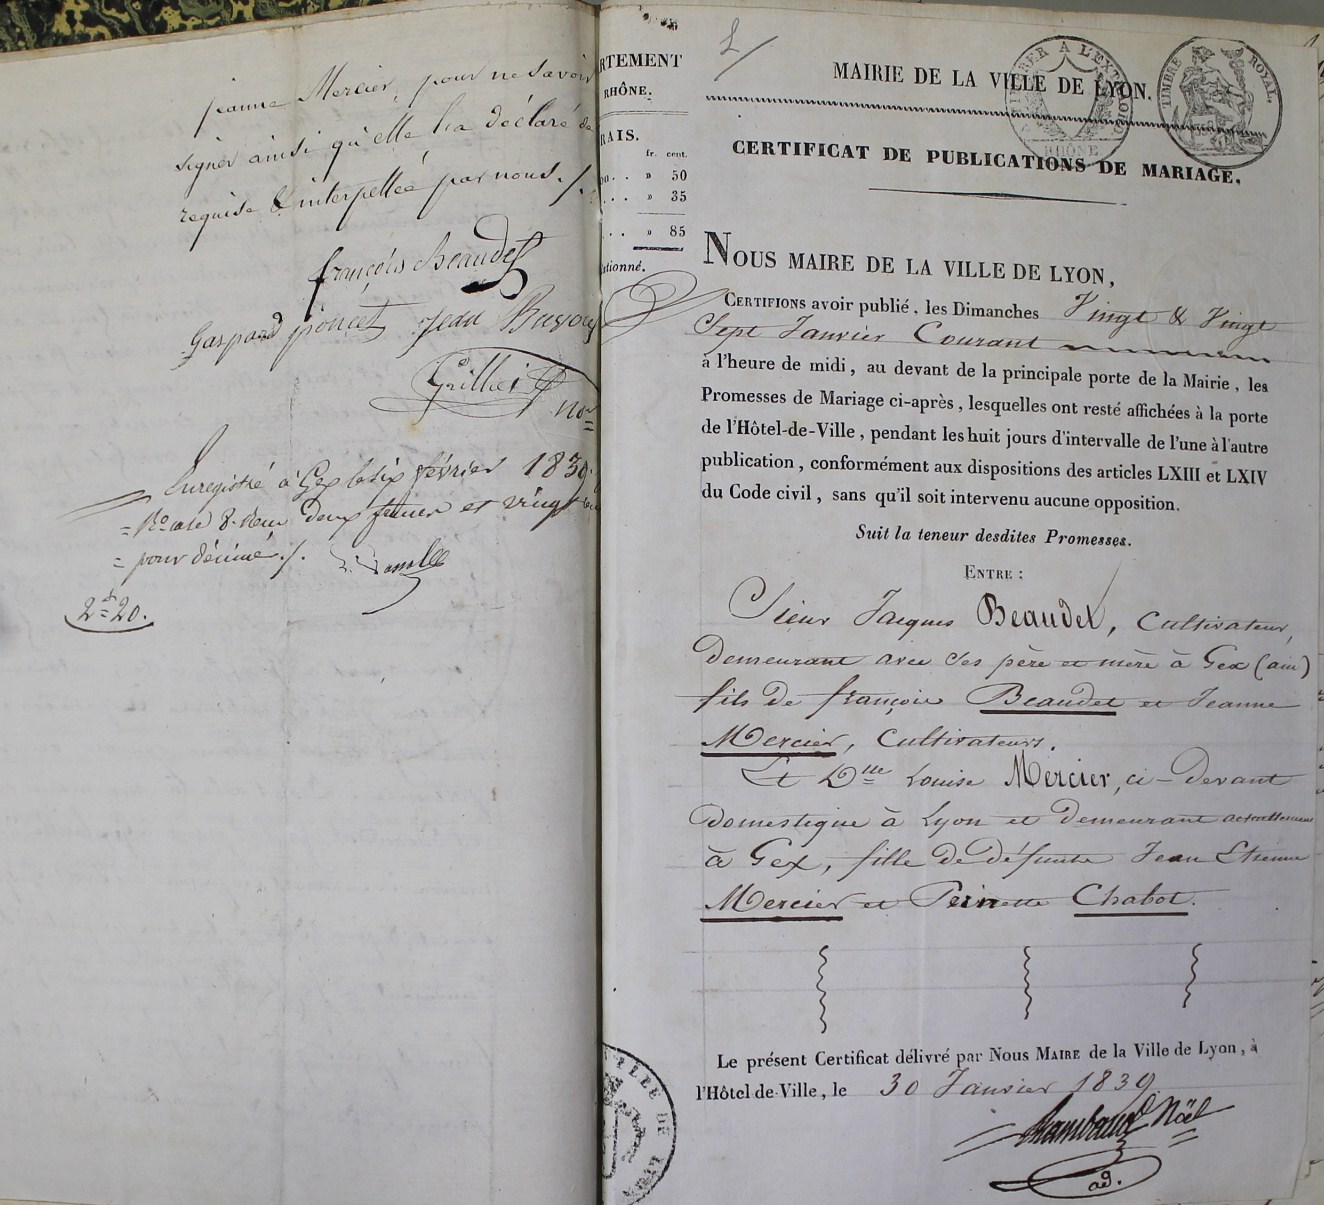 jeanne Mercier, pour ne savoir
signer ainsi qu'elle l'a déclaré de
requise & interpellée par nous ./.
françois Beaudet
Gaspard poncet Jean
Enregistré à Gex le six février 1839
deux francs et vingt
pour décime ./.
2f=20.
RTEMENT
RHÔNE.
RAIS.
fr. cent.
. . » 50
. . . » 35
. . . » 85
tionné.
MAIRIE DE LA VILLE DE LYON.
A L'EXTRAORD
RHÔNE
TIMBRE ROYAL.
CERTIFICAT DE PUBLICATIONS DE MARIAGE.
NOUS MAIRE DE LA VILLE DE LYON,
CERTIFIONS avoir publié, les Dimanches Vingt & Vingt
Sept Janvier Courant
à l'heure de midi, au devant de la principale porte de la Mairie, les
Promesses de Mariage ci-après, lesquelles ont resté affichées à la porte
de l'Hôtel-de-Ville, pendant les huit jours d'intervalle de l'une à l'autre
publication, conformément aux dispositions des articles LXIII et LXIV
du Code civil, sans qu'il soit intervenu aucune opposition.
Suit la teneur desdites Promesses.
ENTRE :
Sieur Jacques Beaudet, Cultivateur,
demeurant avec ses père et mère à Gex (ain)
fils de françois Beaudet et Jeanne
Mercier, Cultivateurs.
Et Dlle Louise Mercier, ci-devant
domestique à Lyon et demeurant actuellement
à Gex, fille de défunts Jean Etienne
Mercier et Peirnette Chabot.
Le présent Certificat délivré par NOUS MAIRE de la Ville de Lyon, à
l'Hôtel-de-Ville, le 30 Janvier 1839
Rambaud Noël
ad.
VILLE DE LYON